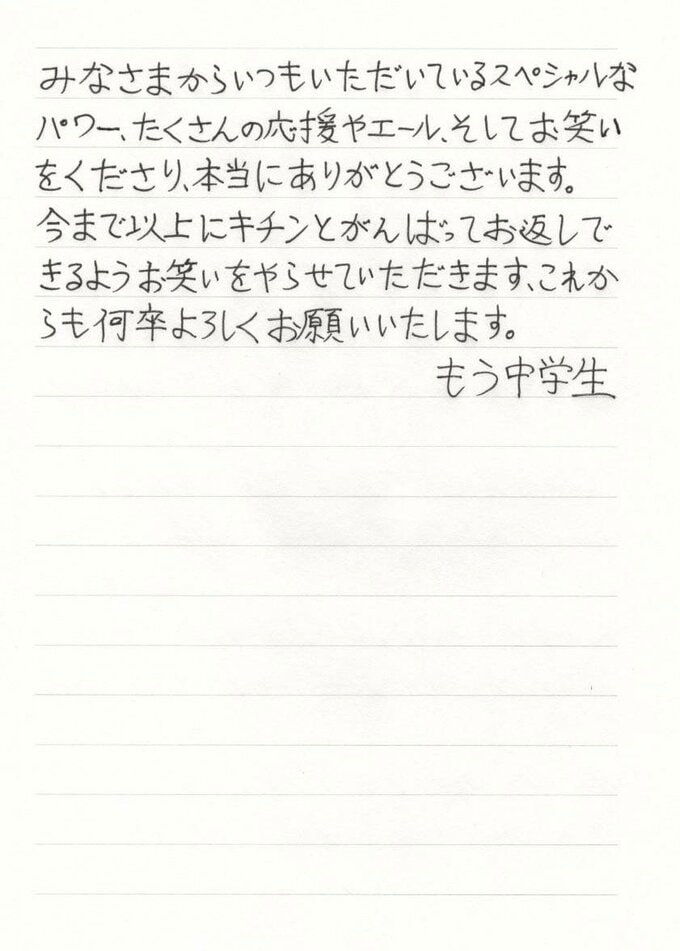 みなさまからいつもいただいているスペシャルな
パワー、たくさんの応援やエール、そしてお笑い
をくださり、本当にありがとうございます。
今まで以上にキチンとがんばってお返しで
きるようお笑いをやらせていただきます、これか
らも何卒よろしくお願いいたします。
もう中学生